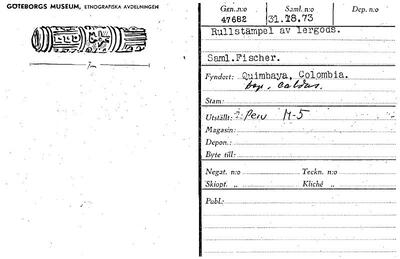 GÖTEBORGS MUSEUM, ETNOGRAFISKA AVDELNINGEN
Gen.n:o Saml. n:o Dep. n:o
47682 31.28.73
Rullstämpel av lergods.
Saml.Fischer.
Fyndort: Quimbaya, Colombia.
Caldas.
Stam:
Utställt: Peru M-5
Magasin:
Depon.:
Byte till:
Negat. n:o Teckn. n:o
Skiopt. „ Kliché „
Publ.: